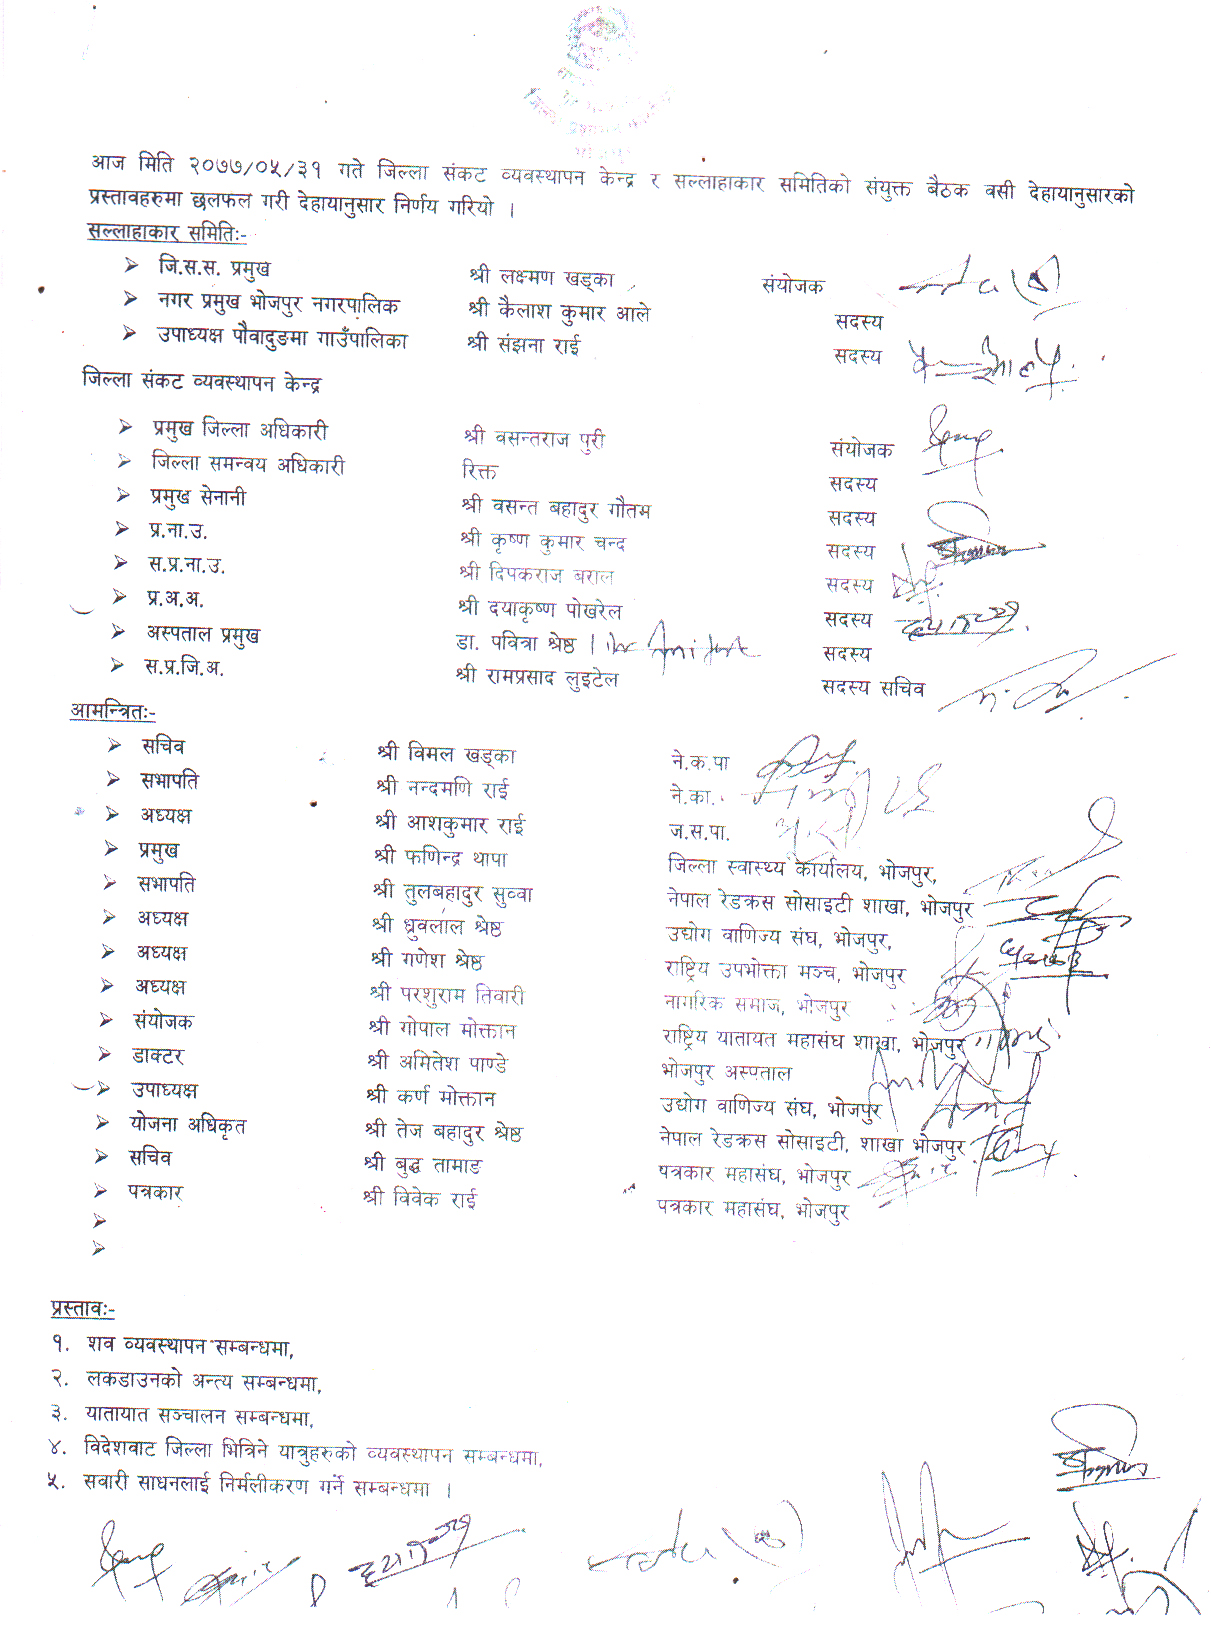 आज मिति २०७७/०५/३१ गते जिल्ला संकट व्यवस्थापन केन्द्र र सल्लाहाकार समितिको संयुक्त बैठक वसी देहायानुसारको
प्रस्तावहरुमा छलफल गरी देहायानुसार निर्णय गरियो ।
सल्लाहाकार समितिः-
➢ जि.स.स. प्रमुख श्री लक्ष्मण खड्का संयोजक
➢ नगर प्रमुख भोजपुर नगरपालिक श्री कैलाश कुमार आले सदस्य
➢ उपाध्यक्ष पौवादुङमा गाउँपालिका श्री संझना राई सदस्य
जिल्ला संकट व्यवस्थापन केन्द्र
➢ प्रमुख जिल्ला अधिकारी श्री वसन्तराज पुरी संयोजक
➢ जिल्ला समन्वय अधिकारी रिक्त सदस्य
➢ प्रमुख सेनानी श्री वसन्त बहादुर गौतम सदस्य
➢ प्र.ना.उ. श्री कृष्ण कुमार चन्द सदस्य
➢ स.प्र.ना.उ. श्री दिपकराज बराल सदस्य
➢ प्र.अ.अ. श्री दयाकृष्ण पोखरेल सदस्य
➢ अस्पताल प्रमुख डा. पवित्रा श्रेष्ठ सदस्य
➢ स.प्र.जि.अ. श्री रामप्रसाद लुइटेल सदस्य सचिव
आमन्त्रितः-
➢ सचिव श्री विमल खड्का ने.क.पा
➢ सभापति श्री नन्दमणि राई ने.का.
➢ अध्यक्ष श्री आशकुमार राई ज.स.पा.
➢ प्रमुख श्री फणिन्द्र थापा जिल्ला स्वास्थ्य कार्यालय, भोजपुर,
➢ सभापति श्री तुलबहादुर सुव्वा नेपाल रेडक्रस सोसाइटी शाखा, भोजपुर
➢ अध्यक्ष श्री ध्रुवलाल श्रेष्ठ उद्योग वाणिज्य संघ, भोजपुर,
➢ अध्यक्ष श्री गणेश श्रेष्ठ राष्ट्रिय उपभोक्ता मञ्च, भोजपुर
➢ अध्यक्ष श्री परशुराम तिवारी नागरिक समाज, भोजपुर
➢ संयोजक श्री गोपाल मोक्तान राष्ट्रिय यातायत महासंघ शाखा, भोजपुर
➢ डाक्टर श्री अमितेश पाण्डे भोजपुर अस्पताल
➢ उपाध्यक्ष श्री कर्ण मोक्तान उद्योग वाणिज्य संघ, भोजपुर
➢ योजना अधिकृत श्री तेज बहादुर श्रेष्ठ नेपाल रेडक्रस सोसाइटी, शाखा भोजपुर
➢ सचिव श्री बुद्ध तामाङ पत्रकार महासंघ, भोजपुर
➢ पत्रकार श्री विवेक राई पत्रकार महासंघ, भोजपुर
➢
➢
प्रस्तावः-
१. शव व्यवस्थापन सम्बन्धमा,
२. लकडाउनको अन्त्य सम्बन्धमा,
३. यातायात सञ्चालन सम्बन्धमा,
४. विदेशवाट जिल्ला भित्रिने यात्रुहरुको व्यवस्थापन सम्बन्धमा,
५. सवारी साधनलाई निर्मलीकरण गर्ने सम्बन्धमा ।